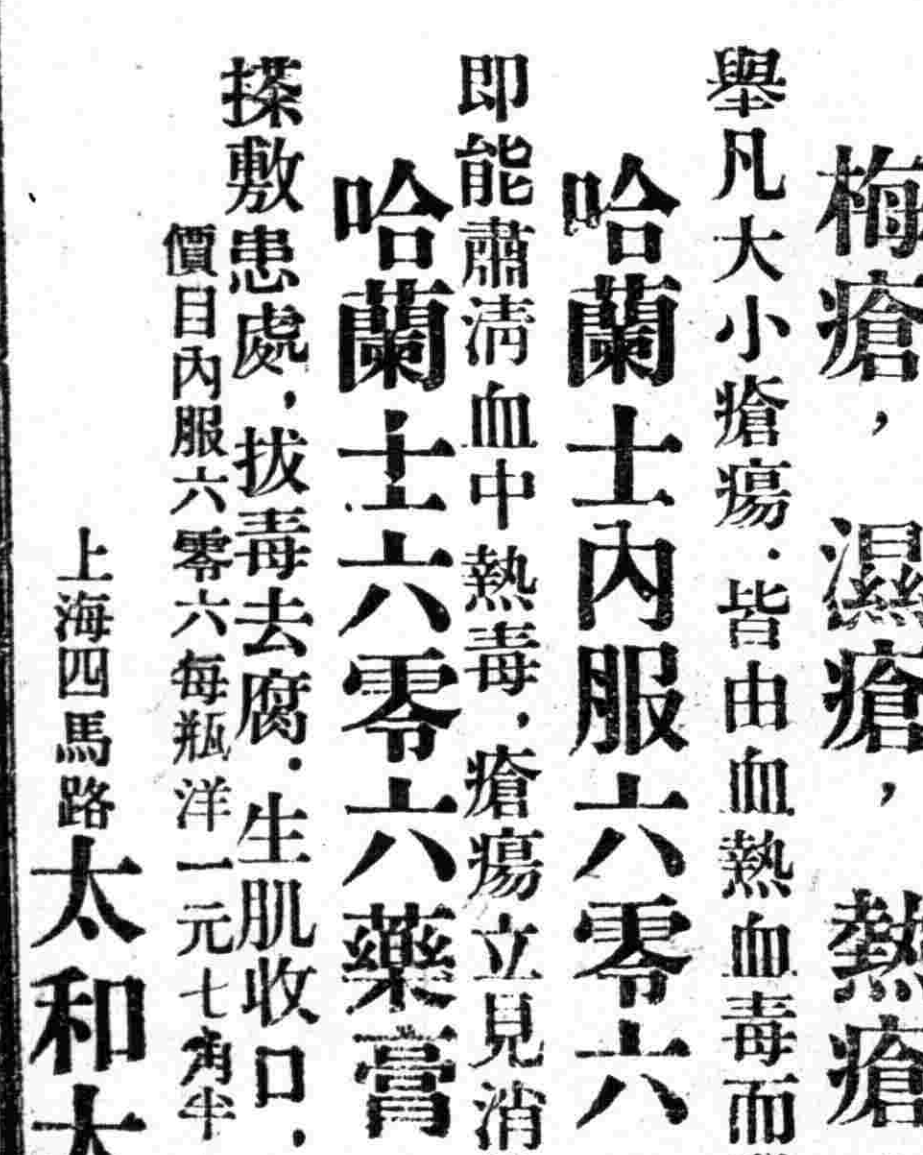 梅瘡，濕瘡，熱瘡
舉凡大小瘡瘍．皆由血熱血毒而
哈蘭士內服六零六
即能肅淸血中熱毒，瘡瘍立見消
哈蘭士六零六藥膏
搽敷患處，拔毒去腐．生肌收口，
價目內服六零六每瓶洋一元七角半
上海四馬路太和大